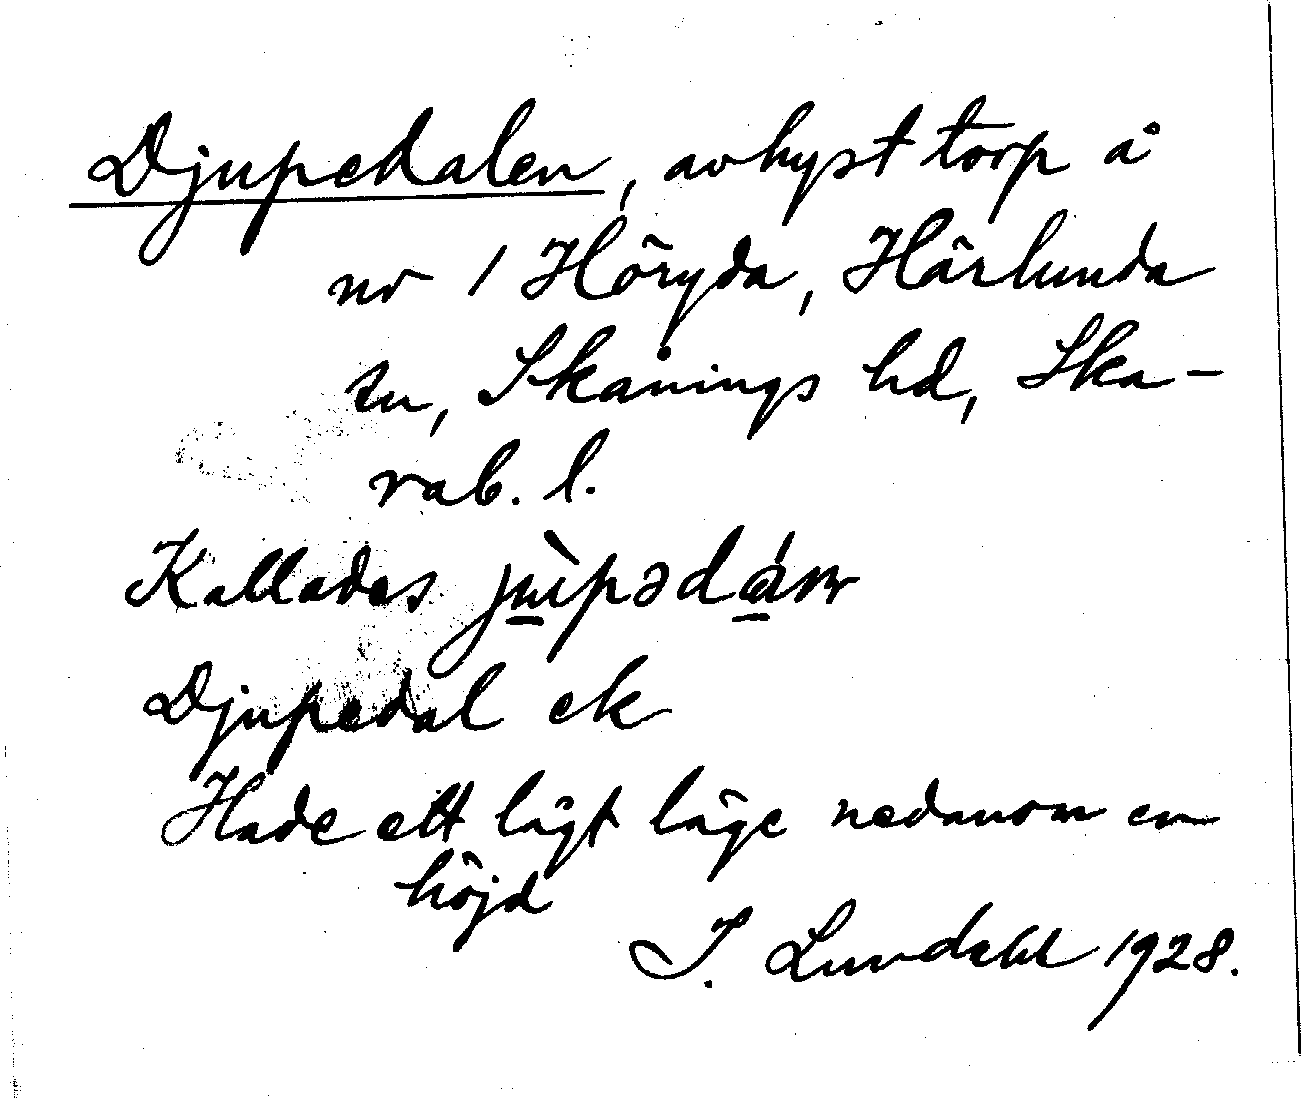 Djupedalen, avhyst torp å
nr 1 Höryda, Härlunda
sn, Skånings hd, Ska-
rab. l.
Kallades
Djupedal ek
Hade ett lågt läge nedanom en
höjd
I. Lundahl 1928.